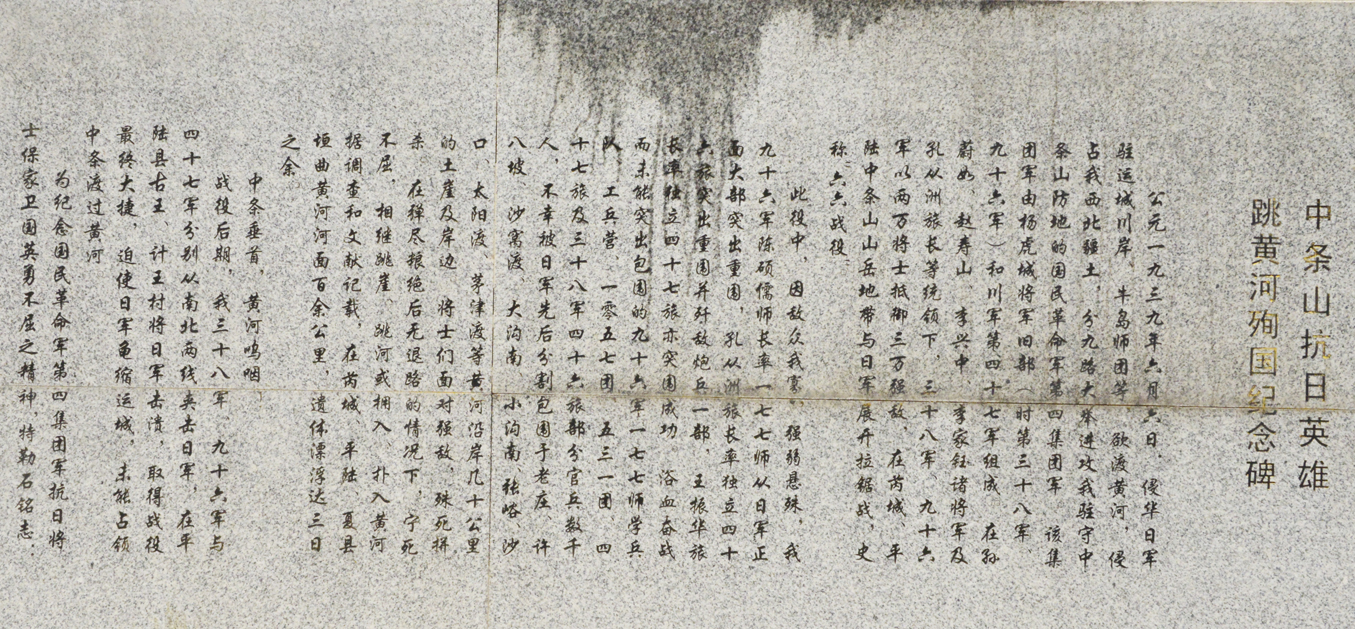 中条山抗日英雄
跳黄河殉国纪念碑
公元一九三九年六月六日，侵华日军
驻运城川岸、牛岛师团等，欲渡黄河，侵
占我西北疆土，分九路大举进攻我驻守中
条山防地的国民革命军第四集团军，该集
团军由杨虎城将军旧部（时第三十八军、
九十六军）和川军第四十七军组成，在孙
蔚如、赵寿山、李兴中、李家钰诸将军及
孔从洲旅长等统领下，三十八军、九十六
军以两万将士抵御三万强敌，在芮城、平
陆中条山山岳地带与日军展开拉锯战，史
称六六战役。
此役中，因敌众我寡，强弱悬殊，我
九十六军陈硕儒师长率一七七师从日军正
面大部突出重围，孔从洲旅长率独立四十
六旅突出重围并歼敌炮兵一部，王振华旅
长率独立四十七旅亦突围成功。浴血奋战
而未能突出包围的九十六军一七七师学兵
队、工兵营、一零五七团、五三一团、四
十七旅及三十八军四十六旅部分官兵数千
人，不幸被日军先后分割包围于老庄、许
八坡、沙窝渡、大沟南、小沟南、张峪、沙
口、太阳渡、茅津渡等黄河沿岸几十公里
的土崖及岸边。将士们面对强敌，殊死拼
杀，在弹尽粮绝后无退路的情况下，宁死
不屈，相继跳崖、跳河或拥入、扑入黄河。
据调查和文献记载，在芮城、平陆、夏县、
垣曲黄河河面百余公里，遗体漂浮达三日
之余。
中条垂首，黄河呜咽。
战役后期，我三十八军、九十六军与
四十七军分别从南北两线夹击日军，在平
陆县古王、计王村将日军击溃，取得战役
最终大捷，迫使日军龟缩运城，未能占领
中条渡过黄河。
为纪念国民革命军第四集团军抗日将
士保家卫国英勇不屈之精神，特勒石铭志。